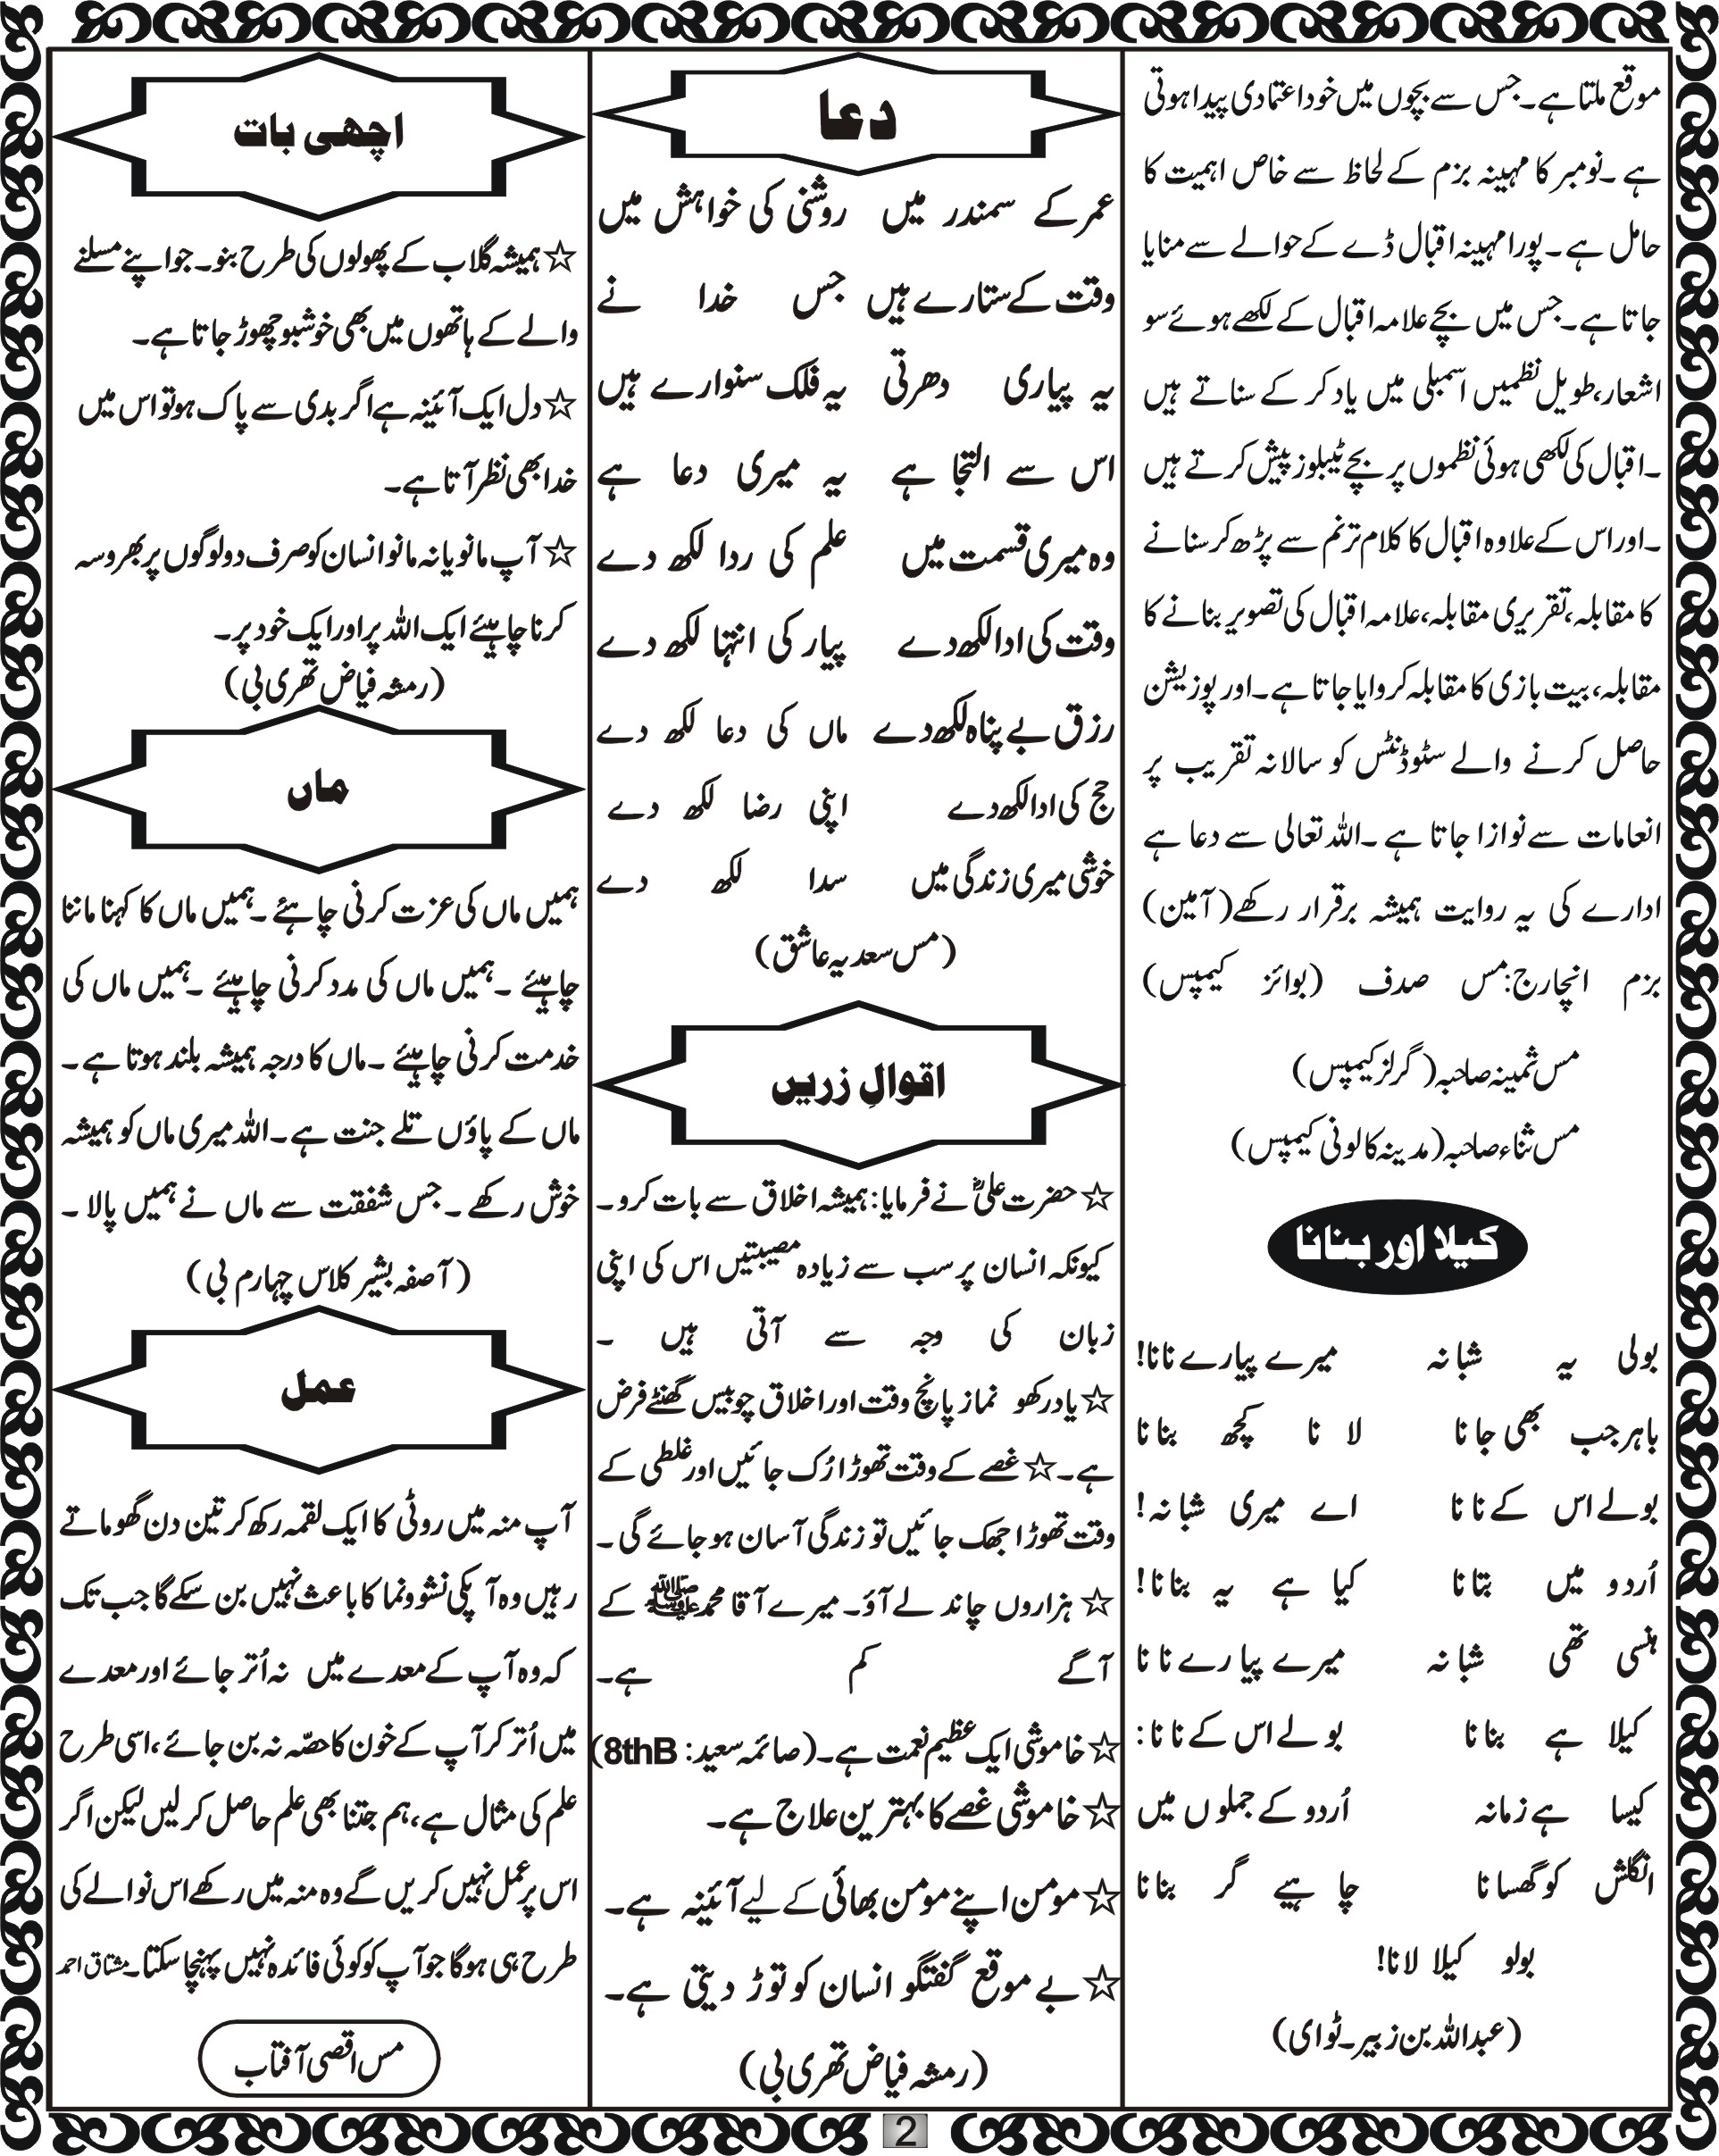 موقع ملتا ہے۔جس سے بچوں میں خود اعتمادی پیدا ہوتی
ہے ۔نومبر کا مہینہ بزم کے لحاظ سے خاص اہمیت کا
حامل ہے ۔پورا مہینہ اقبال ڈے کے حوالے سے منایا
جاتا ہے۔جس میں بچے علامہ اقبال کے لکھے ہوئے سو
اشعار، طویل نظمیں اسمبلی میں یاد کر کے سناتے ہیں
۔اقبال کی لکھی ہوئی نظموں پر بچے ٹیبلوز پیش کرتے ہیں
۔اور اس کے علاوہ اقبال کا کلام ترنم سے پڑھ کر سنانے
کا مقابلہ، تقریری مقابلہ، علامہ اقبال کی تصویر بنانے کا
مقابلہ، بیت بازی کا مقابلہ کروایا جاتا ہے۔اور پوزیشن
حاصل کرنے والے سٹوڈنٹس کو سالانہ تقریب پر
انعامات سے نوازا جاتا ہے ۔اللہ تعالی سے دعا ہے
ادارے کی یہ روایت ہمیشہ برقرار رکھے (آمین)
بزم انچارج: مس صدف (بوائز کیمپس)
مس ثمینہ صاحبہ (گرلز کیمپس)
مس ثناء صاحبہ (مدینہ کالونی کیمپس)
کیلا اور بنانا
بولی یہ شبانہ میرے پیارے نانا!
باہر جب بھی جانا لا نا کچھ بنانا
بولے اس کے نانا اے میری شبانہ!
اُردو میں بتانا کیا ہے یہ بنانا!
ہنسی تھی شبانہ میرے پیارے نانا
کیلا ہے بنانا بولے اس کے نانا:
کیسا ہے زمانہ اُردو کے جملوں میں
انگلش کو گھسانا چاہیے گر بنانا
بولو کیلا لانا!
(عبداللہ بن زبیر۔ٹو ای)
دعا
عمر کے سمندر میں روشنی کی خواہش میں
وقت کے ستارے ہیں جس خدا نے
یہ پیاری دھرتی یہ فلک سنوارے ہیں
اس سے التجا ہے یہ میری دعا ہے
وہ میری قسمت میں علم کی ردا لکھ دے
وقت کی ادا لکھ دے پیار کی انتہا لکھ دے
رزق بے پناہ لکھ دے ماں کی دعا لکھ دے
حج کی ادا لکھ دے اپنی رضا لکھ دے
خوشی میری زندگی میں سدا لکھ دے
(مس سعدیہ عاشق)
اقوالِ زریں
☆ حضرت علیؓ نے فرمایا: ہمیشہ اخلاق سے بات کرو۔
کیونکہ انسان پر سب سے زیادہ مصیبتیں اس کی اپنی
زبان کی وجہ سے آتی ہیں ۔
☆ یاد رکھو نماز پانچ وقت اور اخلاق چوبیس گھنٹے فرض
ہے۔☆ غصے کے وقت تھوڑا رُک جائیں اور غلطی کے
وقت تھوڑا جھک جائیں تو زندگی آسان ہو جائے گی۔
☆ ہزاروں چاند لے آؤ۔ میرے آقا محمد ﷺ کے
آگے کم ہے۔
☆ خاموشی ایک عظیم نعمت ہے۔(صائمہ سعید: 8thB)
☆ خاموشی غصے کا بہترین علاج ہے۔
☆ مومن اپنے مومن بھائی کے لیے آئینہ ہے۔
☆ بے موقع گفتگو انسان کو توڑ دیتی ہے۔
(رمشہ فیاض تھری بی)
اچھی بات
☆ ہمیشہ گلاب کے پھولوں کی طرح بنو۔جو اپنے مسلنے
والے کے ہاتھوں میں بھی خوشبو چھوڑ جاتا ہے۔
☆ دل ایک آئینہ ہے اگر بدی سے پاک ہو تو اس میں
خدا بھی نظر آتا ہے۔
☆ آپ مانو یا نہ مانو انسان کو صرف دو لوگوں پر بھروسہ
کرنا چاہیئے ایک اللہ پر اور ایک خود پر۔
(رمشہ فیاض تھری بی)
ماں
ہمیں ماں کی عزت کرنی چاہئے ۔ہمیں ماں کا کہنا ماننا
چاہیئے ۔ہمیں ماں کی مدد کرنی چاہیئے ۔ہمیں ماں کی
خدمت کرنی چاہیئے ۔ماں کا درجہ ہمیشہ بلند ہوتا ہے۔
ماں کے پاؤں تلے جنت ہے۔اللہ میری ماں کو ہمیشہ
خوش رکھے ۔ جس شفقت سے ماں نے ہمیں پالا ۔
(آصفہ بشیر کلاس چہارم بی)
عمل
آپ منہ میں روٹی کا ایک لقمہ رکھ کر تین دن گھوماتے
رہیں وہ آپکی نشوونما کا باعث نہیں بن سکے گا جب تک
کہ وہ آپ کے معدے میں نہ اُتر جائے اور معدے
میں اُتر کر آپ کے خون کا حصّہ نہ بن جائے، اسی طرح
علم کی مثال ہے، ہم جتنا بھی علم حاصل کر لیں لیکن اگر
اس پر عمل نہیں کریں گے وہ منہ میں رکھے اس نوالے کی
طرح ہی ہوگا جو آپ کو کوئی فائدہ نہیں پہنچا سکتا۔مشتاق احمد
مس اقصی آفتاب
2